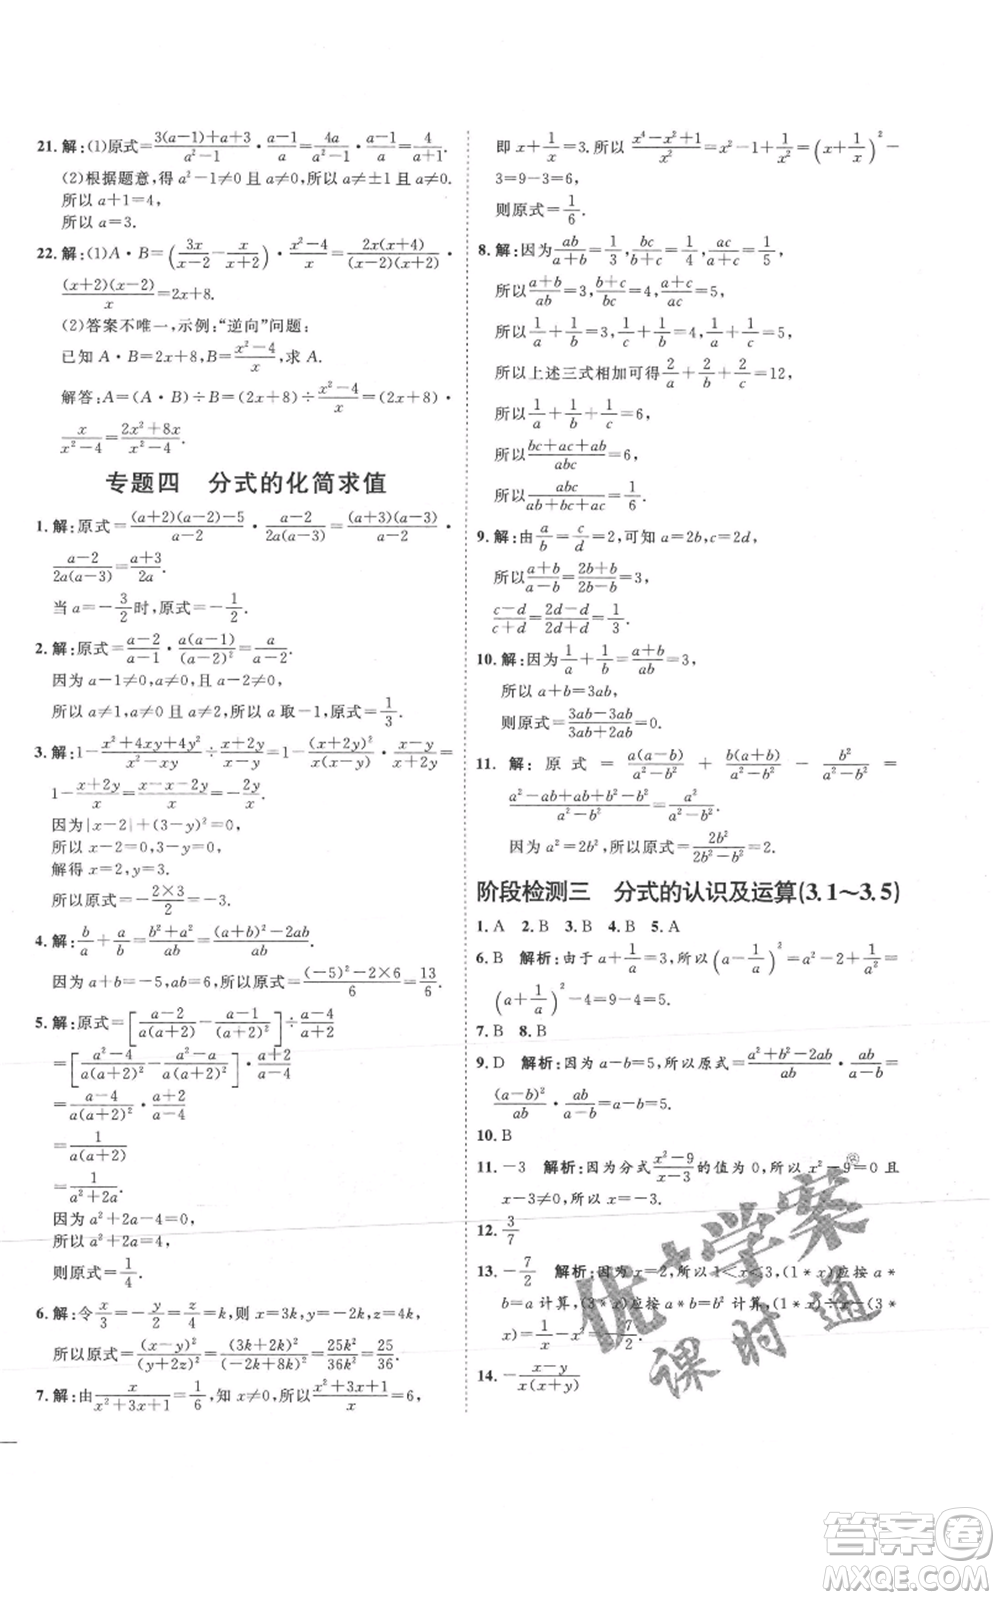 21. 解:(1)原式=\frac{3(a-1)+a+3}{a²-1}·\frac{a-1}{a}=\frac{4a}{a²-1}·\frac{a-1}{a}=\frac{4}{a+1}.
(2)根据题意,得 a²-1≠0 且 a≠0,所以 a≠±1 且 a≠0.
所以 a+1=4,
所以 a=3.
22. 解:(1)A·B=(\frac{3x}{x-2}-\frac{x}{x+2})·\frac{x²-4}{x}=\frac{2x(x+4)}{(x-2)(x+2)}·
\frac{(x+2)(x-2)}{x}=2x+8.
(2)答案不唯一,示例:“逆向”问题:
已知 A·B=2x+8,B=\frac{x²-4}{x},求 A.
解答:A=(A·B)÷B=(2x+8)÷\frac{x²-4}{x}=(2x+8)·
\frac{x}{x²-4}=\frac{2x²+8x}{x²-4}.
专题四 分式的化简求值
1. 解:原式=\frac{(a+2)(a-2)-5}{a-2}·\frac{a-2}{2a(a-3)}=\frac{(a+3)(a-3)}{a-2}·
\frac{a-2}{2a(a-3)}=\frac{a+3}{2a}.
当 a=-\frac{3}{2}时,原式=-\frac{1}{2}.
2. 解:原式=\frac{a-2}{a-1}·\frac{a(a-1)}{(a-2)²}=\frac{a}{a-2}.
因为 a-1≠0,a≠0,且 a-2≠0,
所以 a≠1,a≠0 且 a≠2,所以 a 取-1,原式=\frac{1}{3}.
3. 解:1-\frac{x²+4xy+4y²}{x²-xy}÷\frac{x+2y}{x-y}=1-\frac{(x+2y)²}{x(x-y)}·\frac{x-y}{x+2y}=
1-\frac{x+2y}{x}=\frac{x-x-2y}{x}=-\frac{2y}{x}.
因为|x-2|+(3-y)²=0,
所以 x-2=0,3-y=0,
解得 x=2,y=3.
所以原式=-\frac{2×3}{2}=-3.
4. 解:\frac{b}{a}+\frac{a}{b}=\frac{b²+a²}{ab}=\frac{(a+b)²-2ab}{ab}.
因为 a+b=-5,ab=6,所以原式=\frac{(-5)²-2×6}{6}=\frac{13}{6}.
5. 解:原式=[\frac{a-2}{a(a+2)}-\frac{a-1}{(a+2)²}]÷\frac{a-4}{a+2}
=[\frac{a²-4}{a(a+2)²}-\frac{a²-a}{a(a+2)²}]·\frac{a+2}{a-4}
=\frac{a-4}{a(a+2)²}·\frac{a+2}{a-4}
=\frac{1}{a(a+2)}
=\frac{1}{a²+2a}.
因为 a²+2a-4=0,
所以 a²+2a=4,
则原式=\frac{1}{4}.
6. 解:令\frac{x}{3}=\frac{y}{2}=\frac{z}{4}=k,则 x=3k,y=2k,z=4k,
所以原式=\frac{(x-y)²}{(y+2z)²}=\frac{25}{36}.
7. 解:由\frac{x}{x²+3x+1}=\frac{1}{6},知 x≠0,所以\frac{x²+3x+1}{x}=6,
即 x+\frac{1}{x}=3.所以\frac{x⁴-x²+1}{x²}=x²-1+\frac{1}{x²}=(x+\frac{1}{x})²-
3=9-3=6,
则原式=\frac{1}{6}.
8. 解:因为\frac{ab}{a+b}=\frac{1}{3},\frac{bc}{b+c}=\frac{1}{4},\frac{ac}{a+c}=\frac{1}{5},
所以\frac{a+b}{ab}=3,\frac{b+c}{bc}=4,\frac{a+c}{ac}=5,
所以\frac{1}{a}+\frac{1}{b}=3,\frac{1}{b}+\frac{1}{c}=4,\frac{1}{a}+\frac{1}{c}=5,
所以上述三式相加可得\frac{2}{a}+\frac{2}{b}+\frac{2}{c}=12,
所以\frac{1}{a}+\frac{1}{b}+\frac{1}{c}=6,
所以\frac{bc+ac+ab}{abc}=6,
所以\frac{abc}{ab+bc+ac}=\frac{1}{6}.
9. 解:由\frac{a}{b}=\frac{c}{d}=2,可知 a=2b,c=2d,
所以\frac{a+b}{a-b}=\frac{2b+b}{2b-b}=3,
\frac{c-d}{c+d}=\frac{2d-d}{2d+d}=\frac{1}{3}.
10. 解:因为\frac{1}{a}+\frac{1}{b}=\frac{a+b}{ab}=3,
所以 a+b=3ab,
则原式=\frac{3ab-3ab}{3ab+2ab}=0.
11. 解:原式=\frac{a(a-b)}{a²-b²}+\frac{b(a+b)}{a²-b²}-\frac{b²}{a²-b²}=
\frac{a²-ab+ab+b²-b²}{a²-b²}=\frac{a²}{a²-b²}.
因为 a²=2b²,所以原式=\frac{2b²}{2b²-b²}=2.
阶段检测三 分式的认识及运算(3.1~3.5)
1. A 2. B 3. B 4. B 5. A
6. B 解析:由于 a+\frac{1}{a}=3,所以(a-\frac{1}{a})²=a²-2+\frac{1}{a²}=
(a+\frac{1}{a})²-4=9-4=5.
7. B 8. B
9. D 解析:因为 a-b=5,所以原式=\frac{a²+b²-2ab}{ab}·\frac{ab}{a-b}=
\frac{(a-b)²}{ab}·\frac{ab}{a-b}=a-b=5.
10. B
11. -3 解析:因为分式\frac{x²-9}{x-3}的值为 0,所以 x²-9=0 且
x-3≠0,所以 x=-3.
12. \frac{3}{7}
13. -\frac{7}{2} 解析:因为 x=2,所以 1<x<3,(1*x)应按 a*
b=a 计算,(3*x)应按 a*b=
x)=\frac{1}{x}-x²=-\frac{7}{2}.
14. -\frac{x-y}{x(x+y)}
优+学案
课时通
答案圈
MXQE.COM